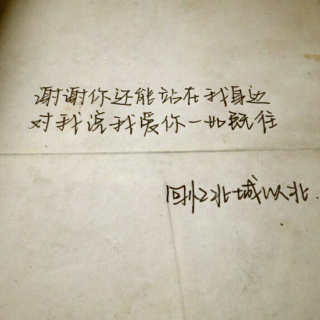 谢谢你还能站在我身边
对我说我爱你一如既往
回忆北城以北.